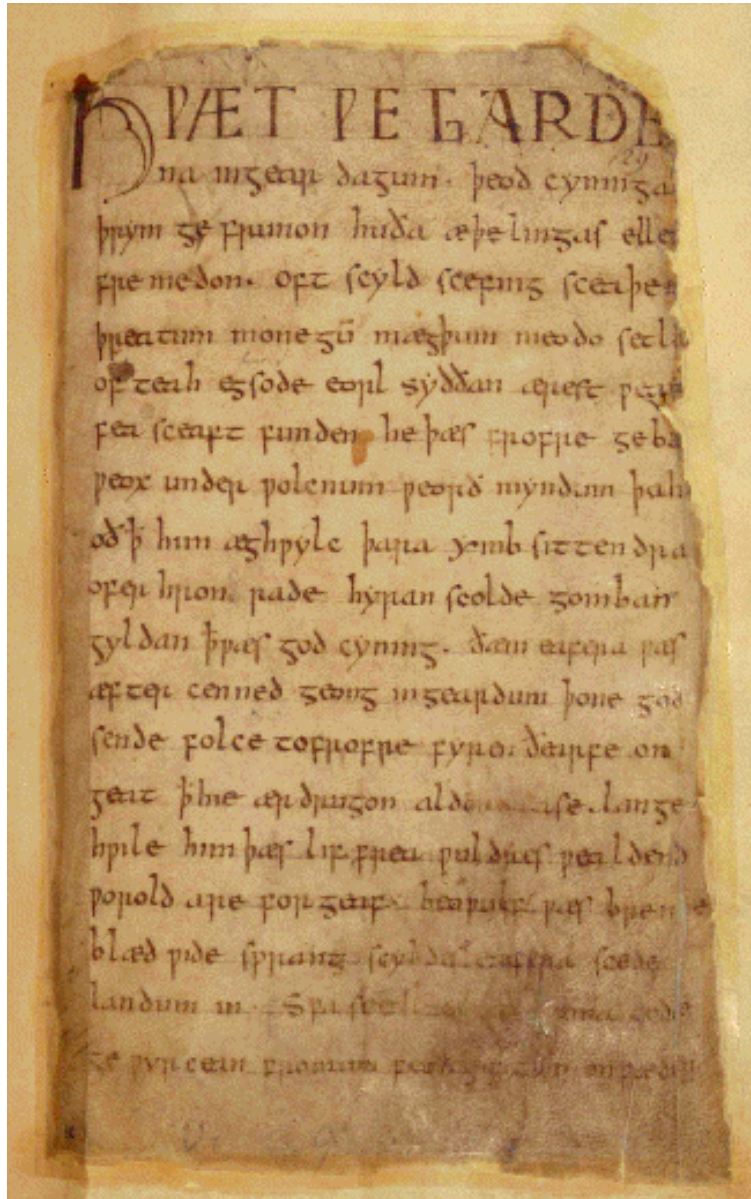 HǷÆT ǷE GARDE
na ingear dagum. þeod cyninga
þrym ge frunon huða æþelingas elle
fre medon. oft scyld scefing sceaþe
þreatum monegū mægþum meodo setla
of teah egsode eorl syððan ærest ƿear
fea sceaft funden he þæs frofre geba
ƿeox under ƿolcnum ƿeorð myndum þah
oð ꝥ him æghƿylc þara ymb sittendra
ofer hron rade hyran scolde gomban
gyldan ꝥ ƿæs god cyning. ðæm eafera ƿæs
æfter cenned geong ingeardum þone god
sende folce tofrofre fyren ðearfe on
geat ꝥ hie ær drugon aldor ase. lange
hƿile him þæs lif frea ƿuldres ƿealdend
ƿorold are for geaf. beoƿulf ƿæs breme
blæd ƿide sprang scyldes eafera scede
landum in. Sƿa sceal gode
ge ƿyrcean fromum feoh giftum on fæder
129